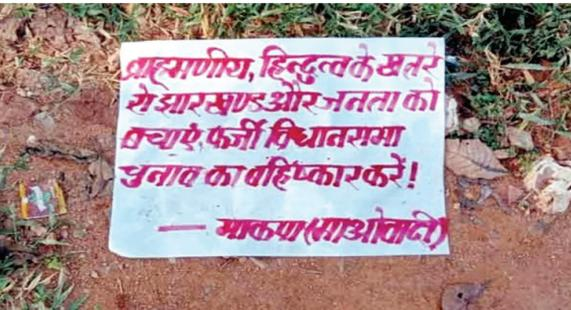 ब्राहमणीय, हिन्दुत्व के खतरे
से झारखण्ड और जनता को
बचाएं, फर्जी विधानसभा
चुनाव का वहिष्कार करें!
— भाकपा (माओवादी)